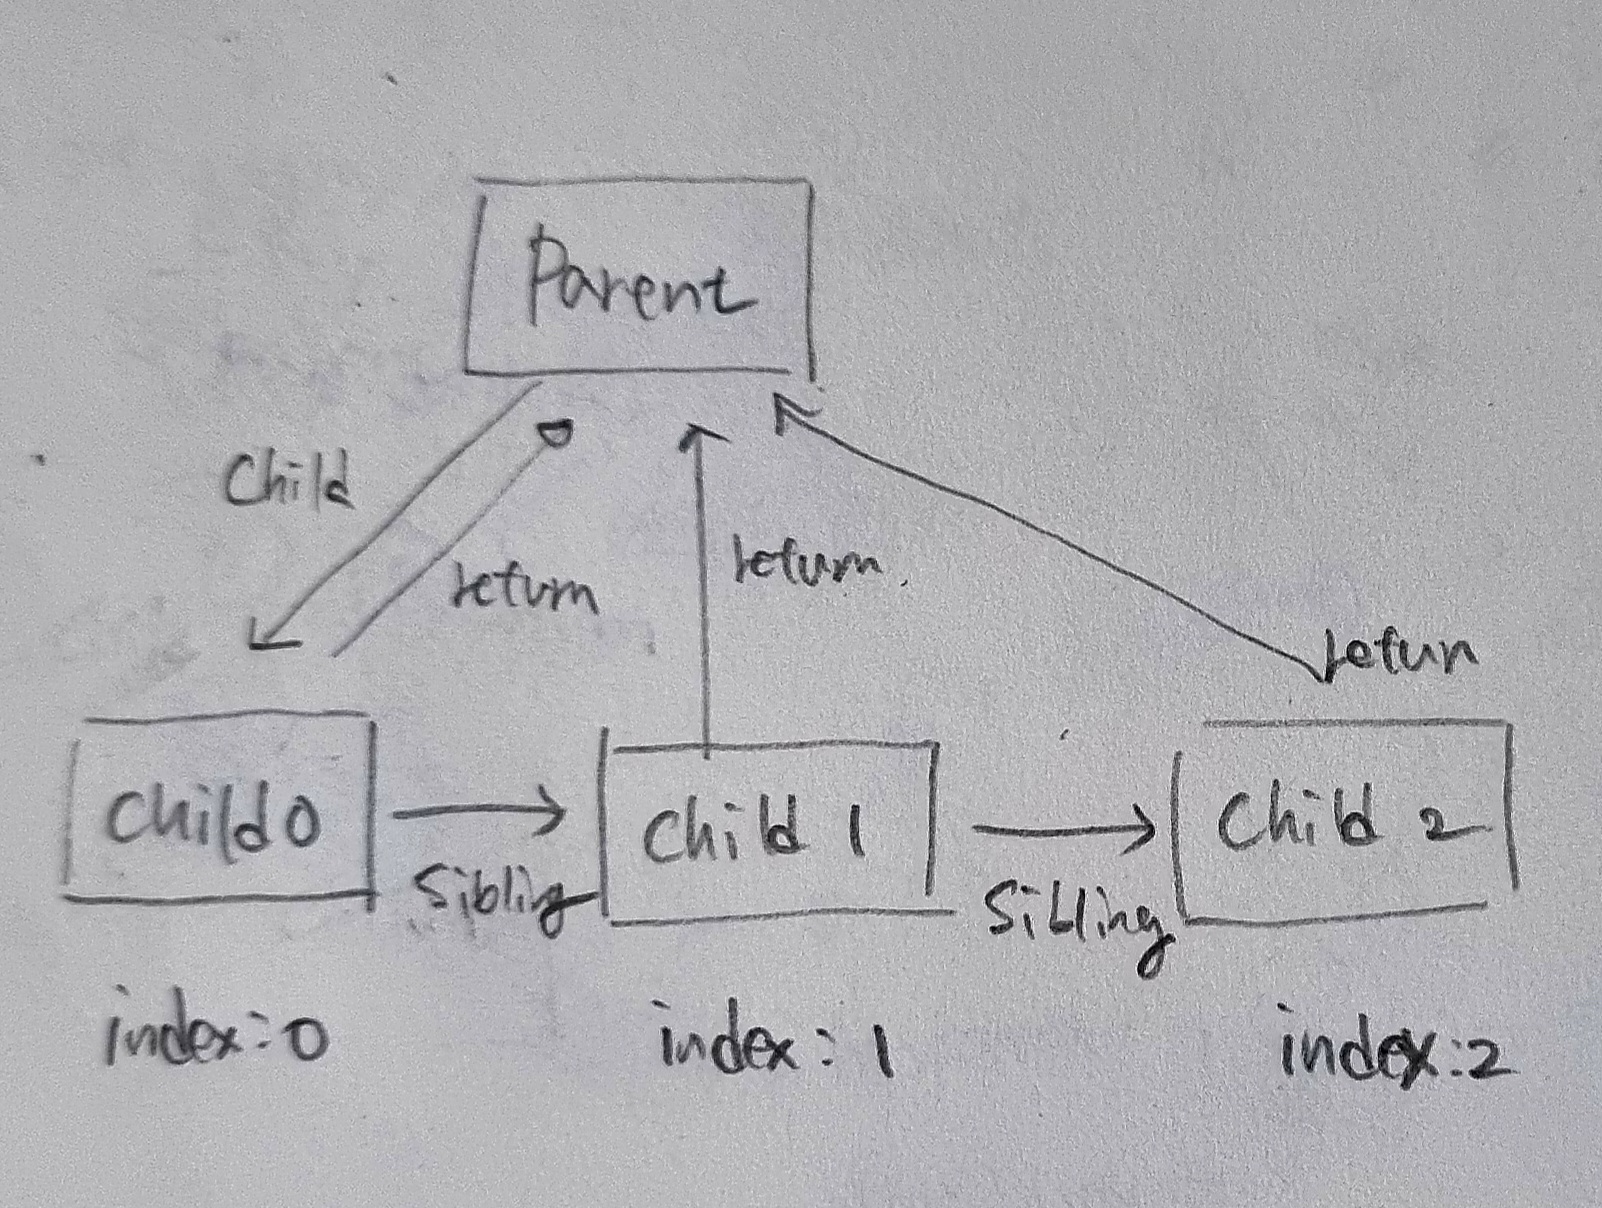 Parent
Child
return
return
retun
Child 0
Child 1
Child 2
Sibling
Sibling
index: 0
index: 1
index: 2